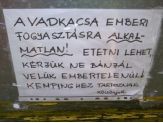 A VADKACSA EMBERI
FOGYASZTÁSRA ALKAL-
MATLAN! ETETNI LEHET,
KÉRJÜK NE BÁNJÁL
VELÜK EMBERTELENÜL!
KEMPINGHEZ TARTOZNAK
KÖSZÖNJÜK